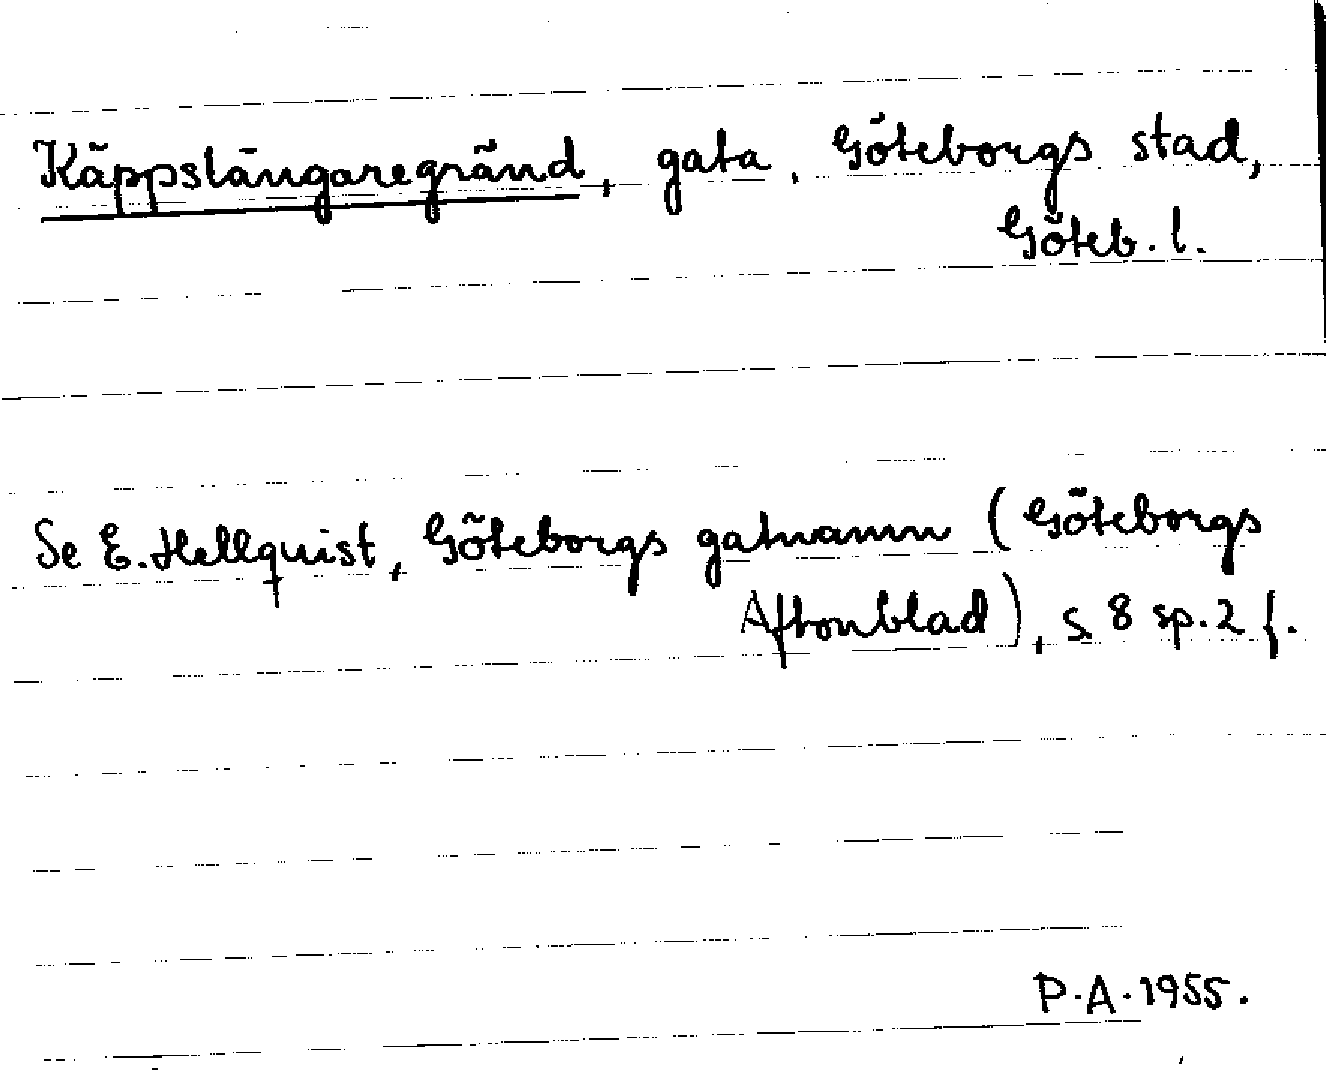 Käppslängaregränd, gata, Göteborgs stad,
Göteb. l.
Se E. Hellquist, Göteborgs gatnamn (Göteborgs
Aftonblad), s. 8 sp. 2 f.
P.A. 1955.